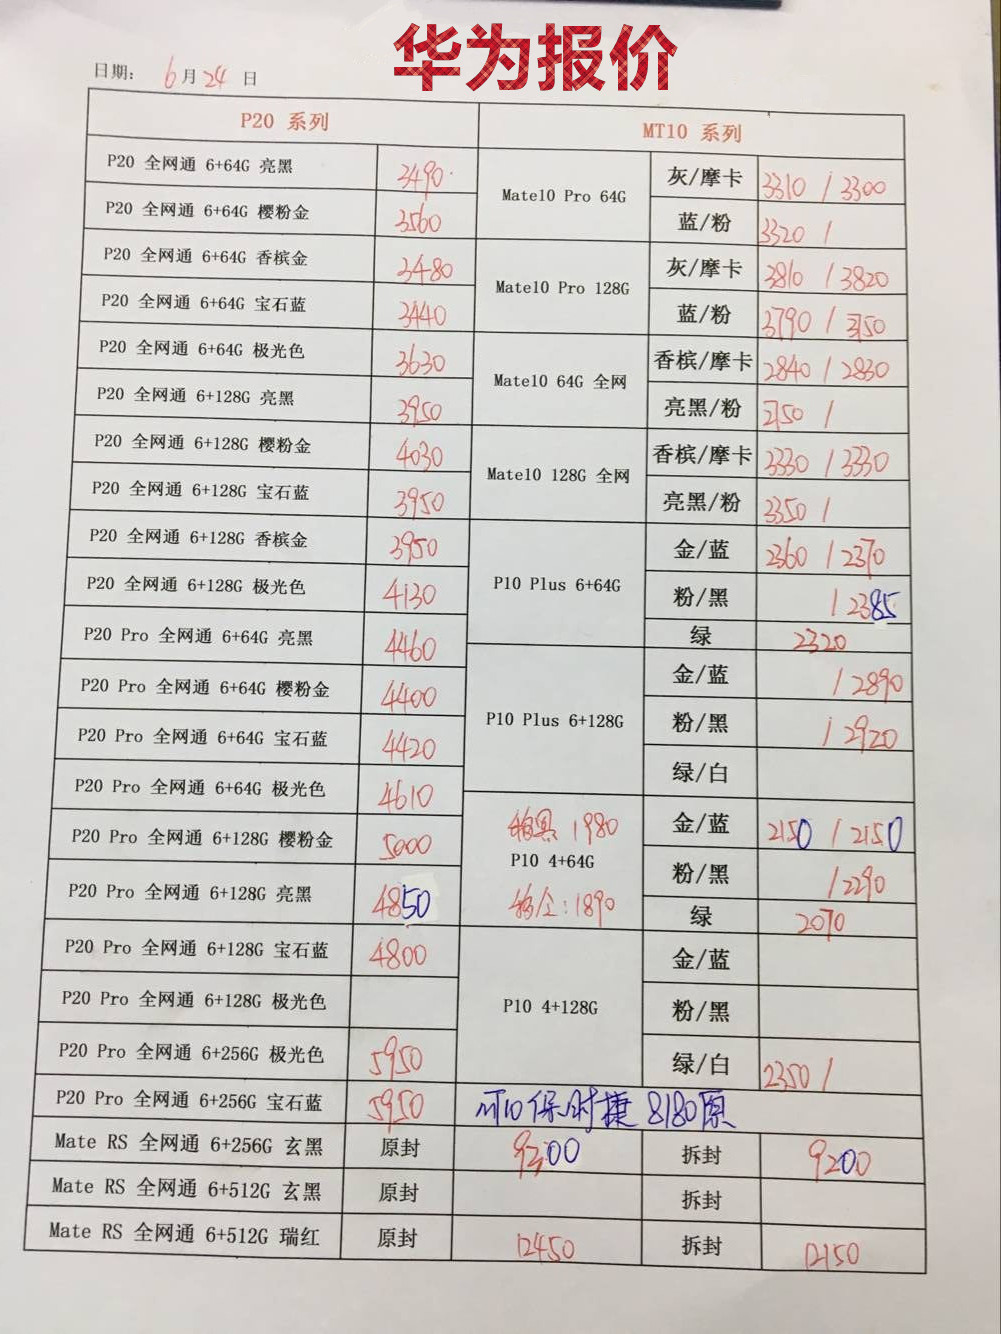 华为报价
日期: 6月24日
P20 系列
MT10 系列
P20 全网通 6+64G 亮黑 3490
P20 全网通 6+64G 樱粉金 3560
P20 全网通 6+64G 香槟金 3480
P20 全网通 6+64G 宝石蓝 3440
P20 全网通 6+64G 极光色 3630
P20 全网通 6+128G 亮黑 3950
P20 全网通 6+128G 樱粉金 4030
P20 全网通 6+128G 宝石蓝 3950
P20 全网通 6+128G 香槟金 3950
P20 全网通 6+128G 极光色 4130
P20 Pro 全网通 6+64G 亮黑 4460
P20 Pro 全网通 6+64G 樱粉金 4400
P20 Pro 全网通 6+64G 宝石蓝 4420
P20 Pro 全网通 6+64G 极光色 4610
P20 Pro 全网通 6+128G 樱粉金 5000
P20 Pro 全网通 6+128G 亮黑 4850
P20 Pro 全网通 6+128G 宝石蓝 4800
P20 Pro 全网通 6+128G 极光色
P20 Pro 全网通 6+256G 极光色 5950
P20 Pro 全网通 6+256G 宝石蓝 5950
Mate10 Pro 64G
灰/摩卡 3310 / 3300
蓝/粉 3320 /
Mate10 Pro 128G
灰/摩卡 3810 / 3820
蓝/粉 3790 /
Mate10 64G 全网
香槟/摩卡 2840 / 2830
亮黑/粉 /
Mate10 128G 全网
香槟/摩卡 3330 / 3330
亮黑/粉 3350 /
P10 Plus 6+64G
金/蓝 2360 / 2370
粉/黑 / 2385
绿 2320
P10 Plus 6+128G
金/蓝 / 2890
粉/黑 / 2920
绿/白
1980
P10 4+64G
1890
金/蓝 2150 / 2150
粉/黑 / 2290
绿 2070
P10 4+128G
金/蓝
粉/黑
绿/白 2350 /
MT10保时捷 8180原
Mate RS 全网通 6+256G 玄黑 原封 9300 拆封 9200
Mate RS 全网通 6+512G 玄黑 原封 拆封
Mate RS 全网通 6+512G 瑞红 原封 12450 拆封 12150